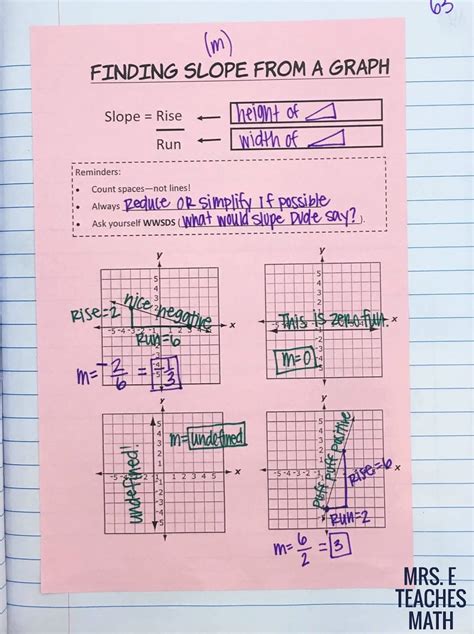 63
(m)
FINDING SLOPE FROM A GRAPH
Slope = Rise ← height of
Run ← width of
Reminders:
• Count spaces—not lines!
• Always Reduce OR simplify if possible
• Ask yourself WWSDS (what would slope Dude say?).
y
Rise=2 nice negative
x
Run=6
m= -2/6 = -1/3
y
This is zero fun.
x
m=0
y
undefined!
m= undefined
x
y
puff puff positive
Rise=6
x
Run=2
m= 6/2 = 3
MRS. E
TEACHES
MATH